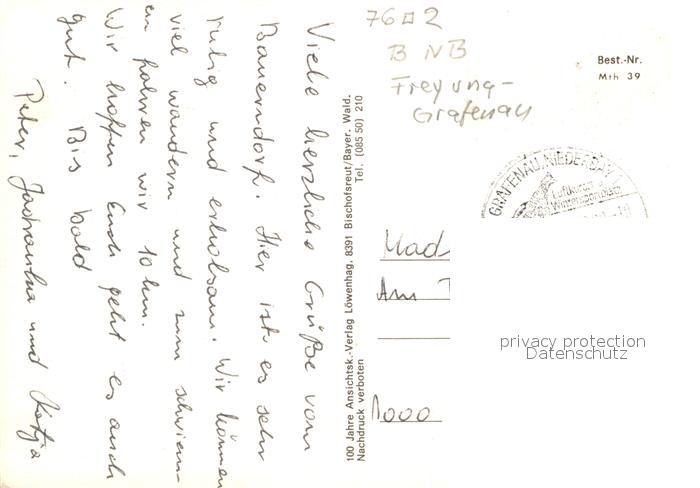 Viele herzliche Grüße vom
Bauerndorf. Hier ist es sehr
ruhig und erholsam. Wir können
viel wandern und zum schwimm-
en fahren wir 10 km.
Wir hoffen Euch geht es auch
gut. Bis bald
Peter, und Katja
100 Jahre Ansichtsk.-Verlag Löwenhag. 8391 Bischofsreut/Bayer. Wald.
Nachdruck verboten Tel. (085 50) 210
76 2
B NB
Freyung-
Grafenau
Best.-Nr.
Mth 39
GRAFENAU, NIEDERBAY
Luftkurort u.
Wintersportplatz
Mad
Am
1000
privacy protection
Datenschutz